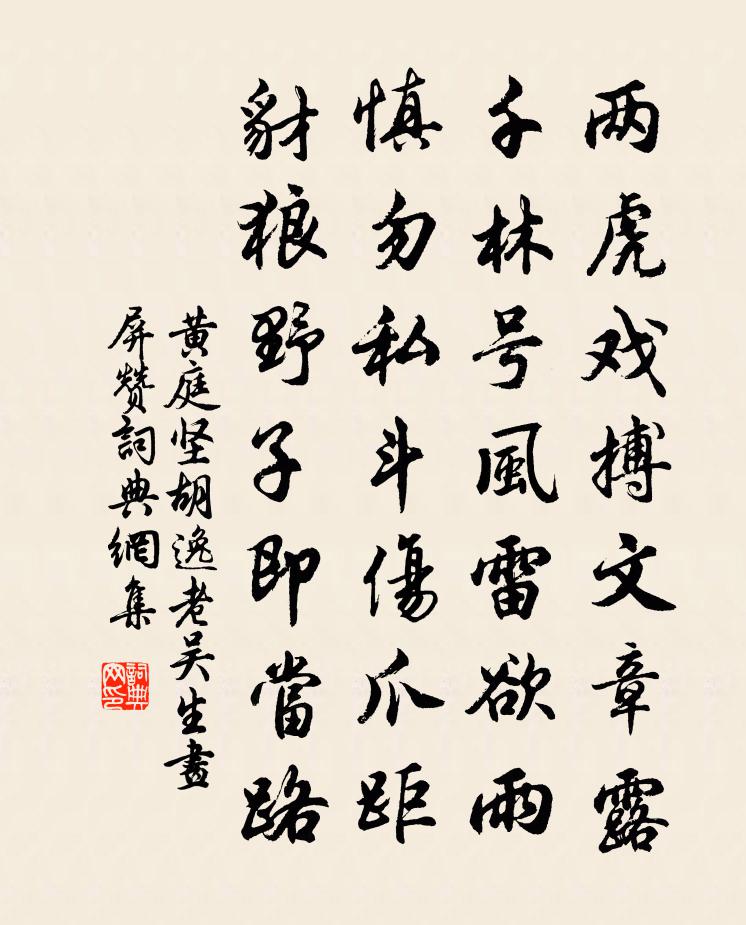 两虎戏搏文章露
千林号風雷欲雨
慎勿私斗傷爪距
豺狼野子即當路
黄庭坚胡逸老吴生畫
屏赞詞典網集
詞典
网印